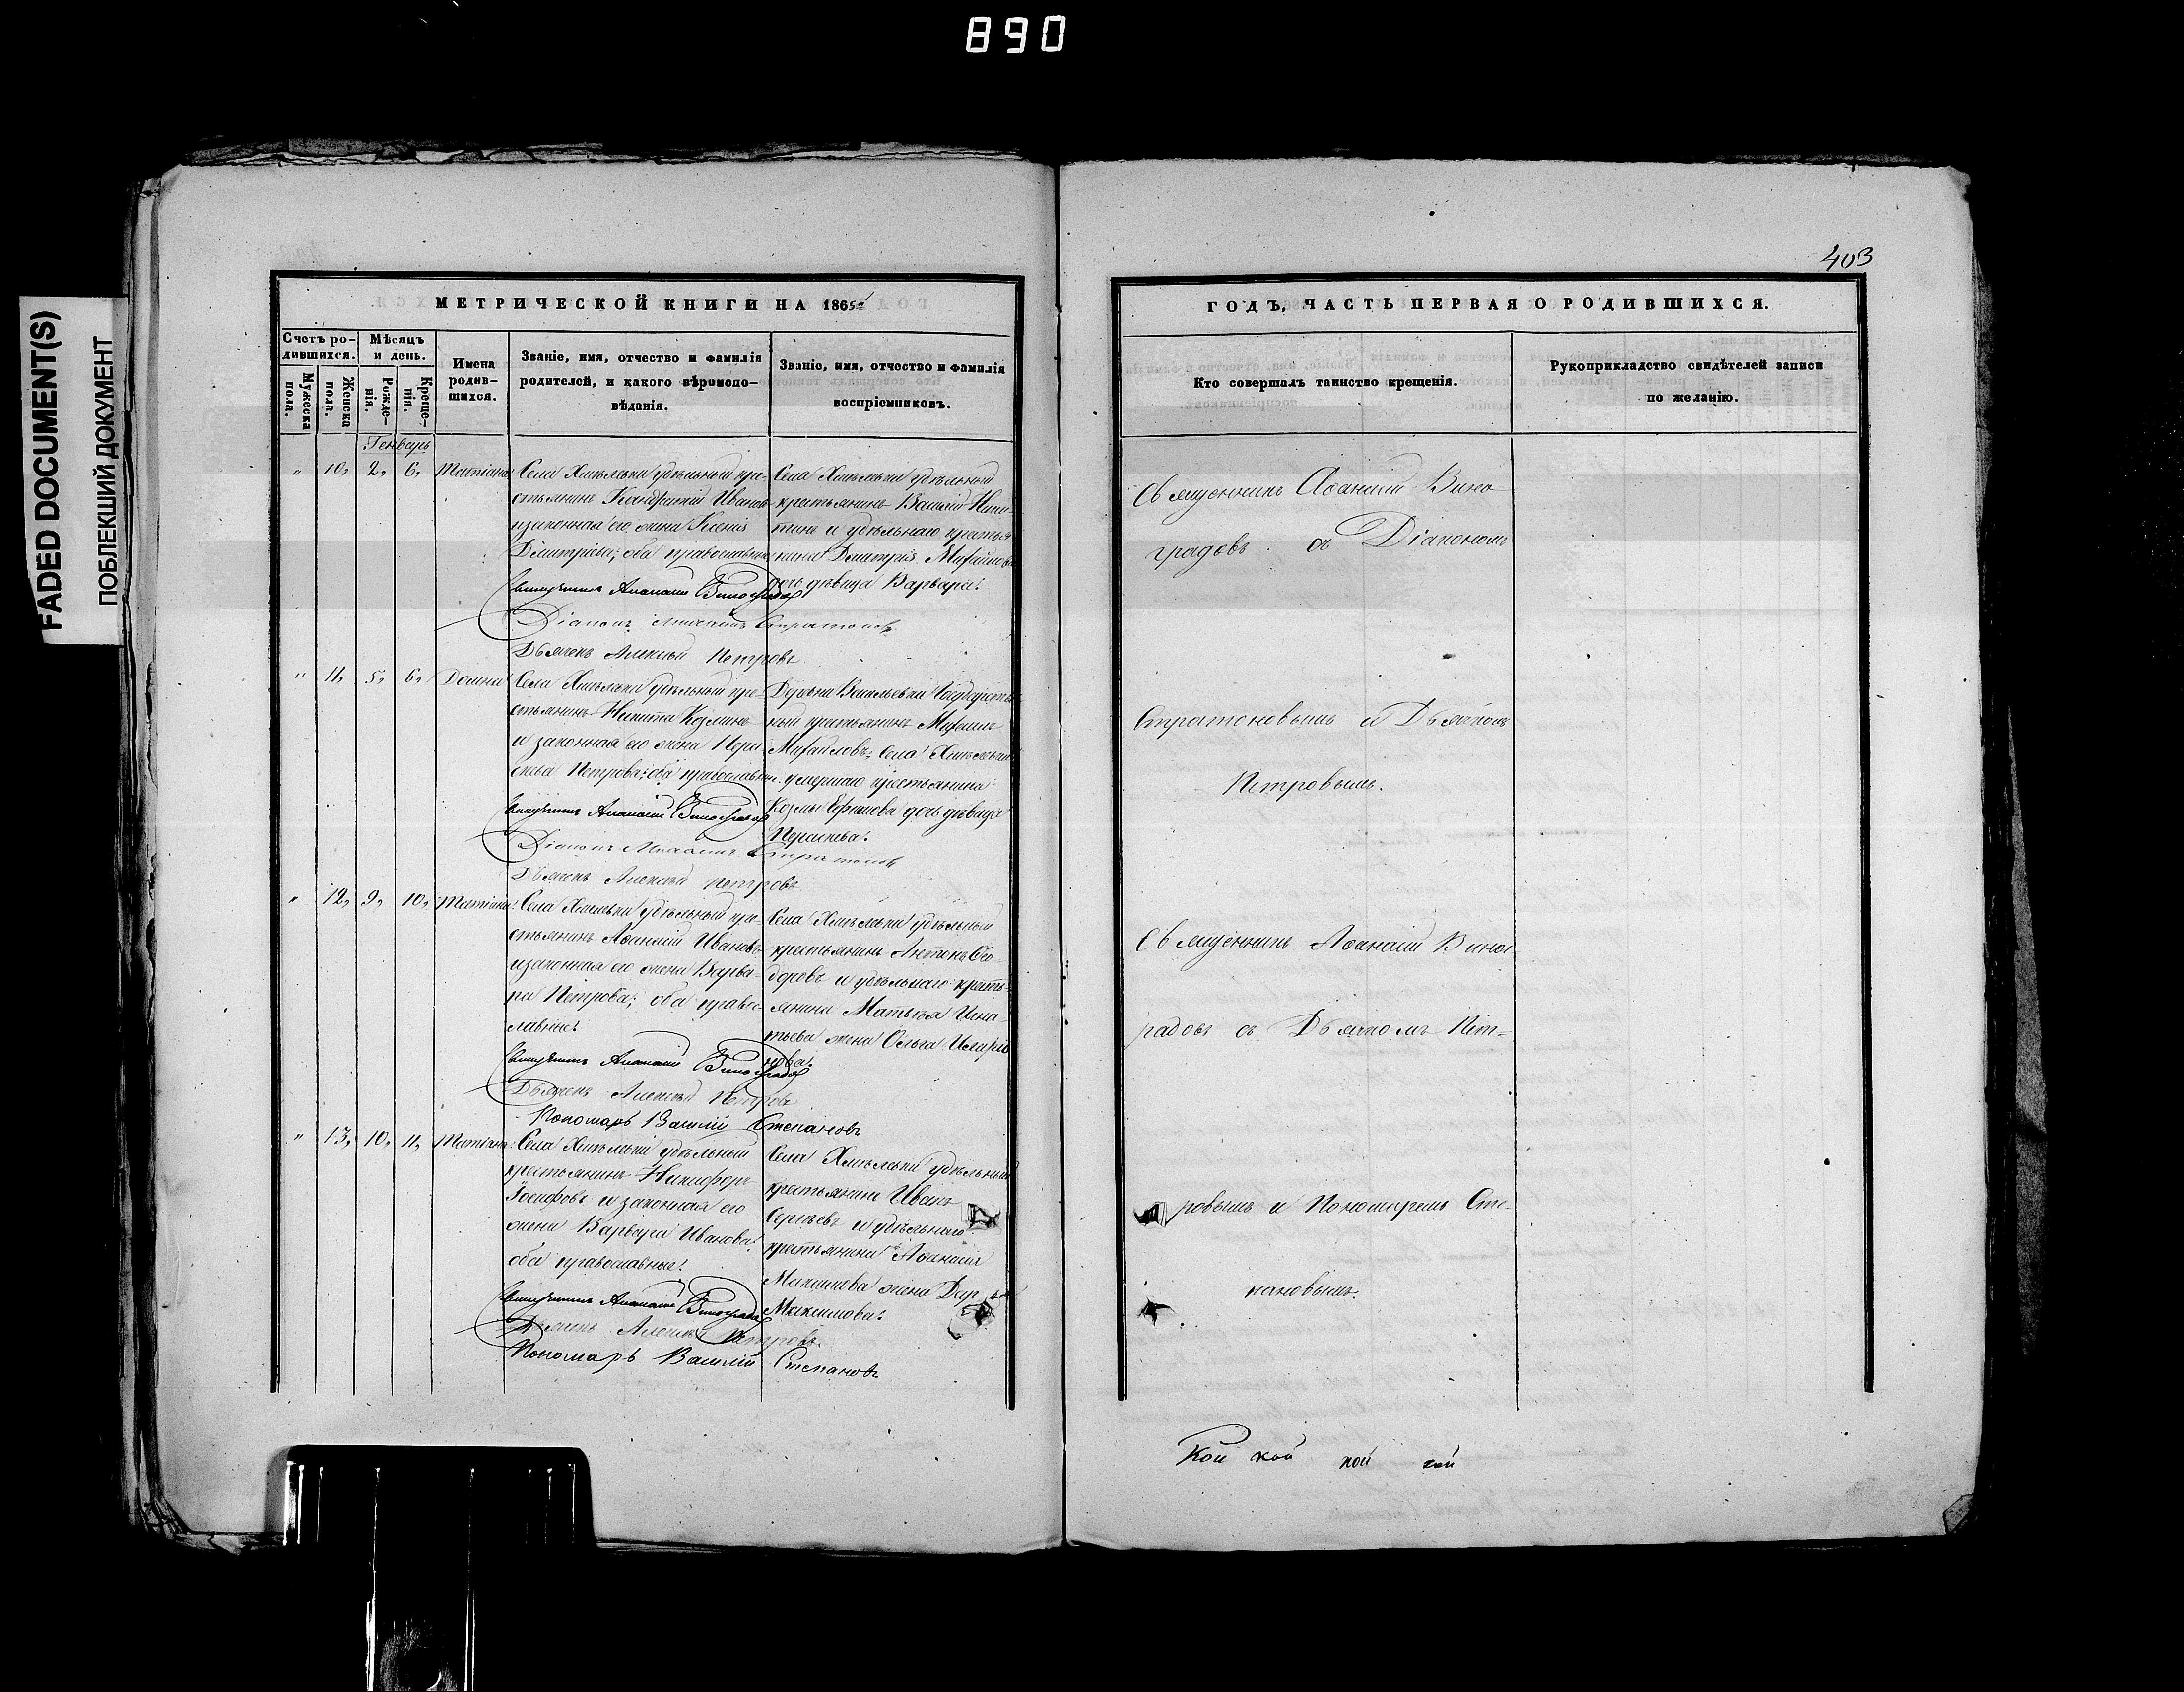 890
FADED DOCUMENT(S)
ПОБЛЕКШИЙ ДОКУМЕНТ
403
МЕТРИЧЕСКОЙ КНИГИ НА 1865
Счетъ родившихся.
Мужеска пола.
Женска пола.
Мѣсяцъ и день.
Рожденія.
Крещенія.
Имена родившихся.
Званіе, имя, отчество и фамилія
родителей, и какого вѣроиспо-
вѣданія.
Званіе, имя, отчество и фамилія
воспріемниковъ.
Генварь
" 10, 2, 6, Татіана
Села Хмѣлевки удѣльный кре-
стьянинъ Иванов
и законная его жена
Димитріева; оба православные
Священникъ Афанасій Виноградов
Діаконъ Михаилъ Стратонов
Дьячекъ Алексѣй Петровъ
Села Хмѣлевки удѣльный
крестьянинъ Василій Ники-
тинъ и удѣльнаго крестья-
нина Дмитрія Михайлова
дочь дѣвица Варвара.
" 11, 5, 6, Домна
Села Хмѣлевки удѣльный кре-
стьянинъ Никита Козминъ
и законная его жена Пара-
скева Петрова; оба православн.
Священникъ Афанасій Виноградов
Діаконъ Михаилъ Стратонов
Дьячекъ Алексѣй Петровъ
Деревни Васильевки Государствен-
ный крестьянинъ Михаилъ
Михайловъ; Села Хмѣлевки
умершаго крестьянина
Козмы Ефимова дочь дѣвица
Параскева.
" 12, 9, 10, Татіана
Села Хмѣлевки удѣльный кре-
стьянинъ Афанасій Ивановъ
и законная его жена Варва-
ра Петрова; оба право-
славные.
Священникъ Афанасій Виноградов
Дьячекъ Алексѣй Петровъ
Пономарь Василій Степановъ
Села Хмѣлевки удѣльный
крестьянинъ Антонъ Ѳео-
доровъ и удѣльнаго кресть-
янина Матвѣя Игна-
тьева жена Ольга Иларіо-
нова.
" 13, 10, 11, Татіана
Села Хмѣлевки удѣльный
крестьянинъ Никифоръ
Іосифовъ и законная его
жена Варвара Иванова;
оба православные.
Священникъ Афанасій Виноградов
Дьячекъ Алексѣй Петровъ
Пономарь Василій Степановъ
Села Хмѣлевки удѣльный
крестьянинъ Иванъ
Сергѣевъ и удѣльнаго
крестьянина Афанасія
Максимова жена Дарья
Максимова.
ГОДЪ, ЧАСТЬ ПЕРВАЯ О РОДИВШИХСЯ.
Кто совершалъ таинство крещенія.
Рукоприкладство свидѣтелей записи
по желанію.
Священникъ Афанасій Вино-
градовъ съ Діакономъ
Стратоновымъ и Дьячкомъ
Петровымъ.
Священникъ Афанасій Виног-
радовъ съ Дьячкомъ Пет-
ровымъ и Пономаремъ Сте-
пановымъ.
Кой кой кой кой